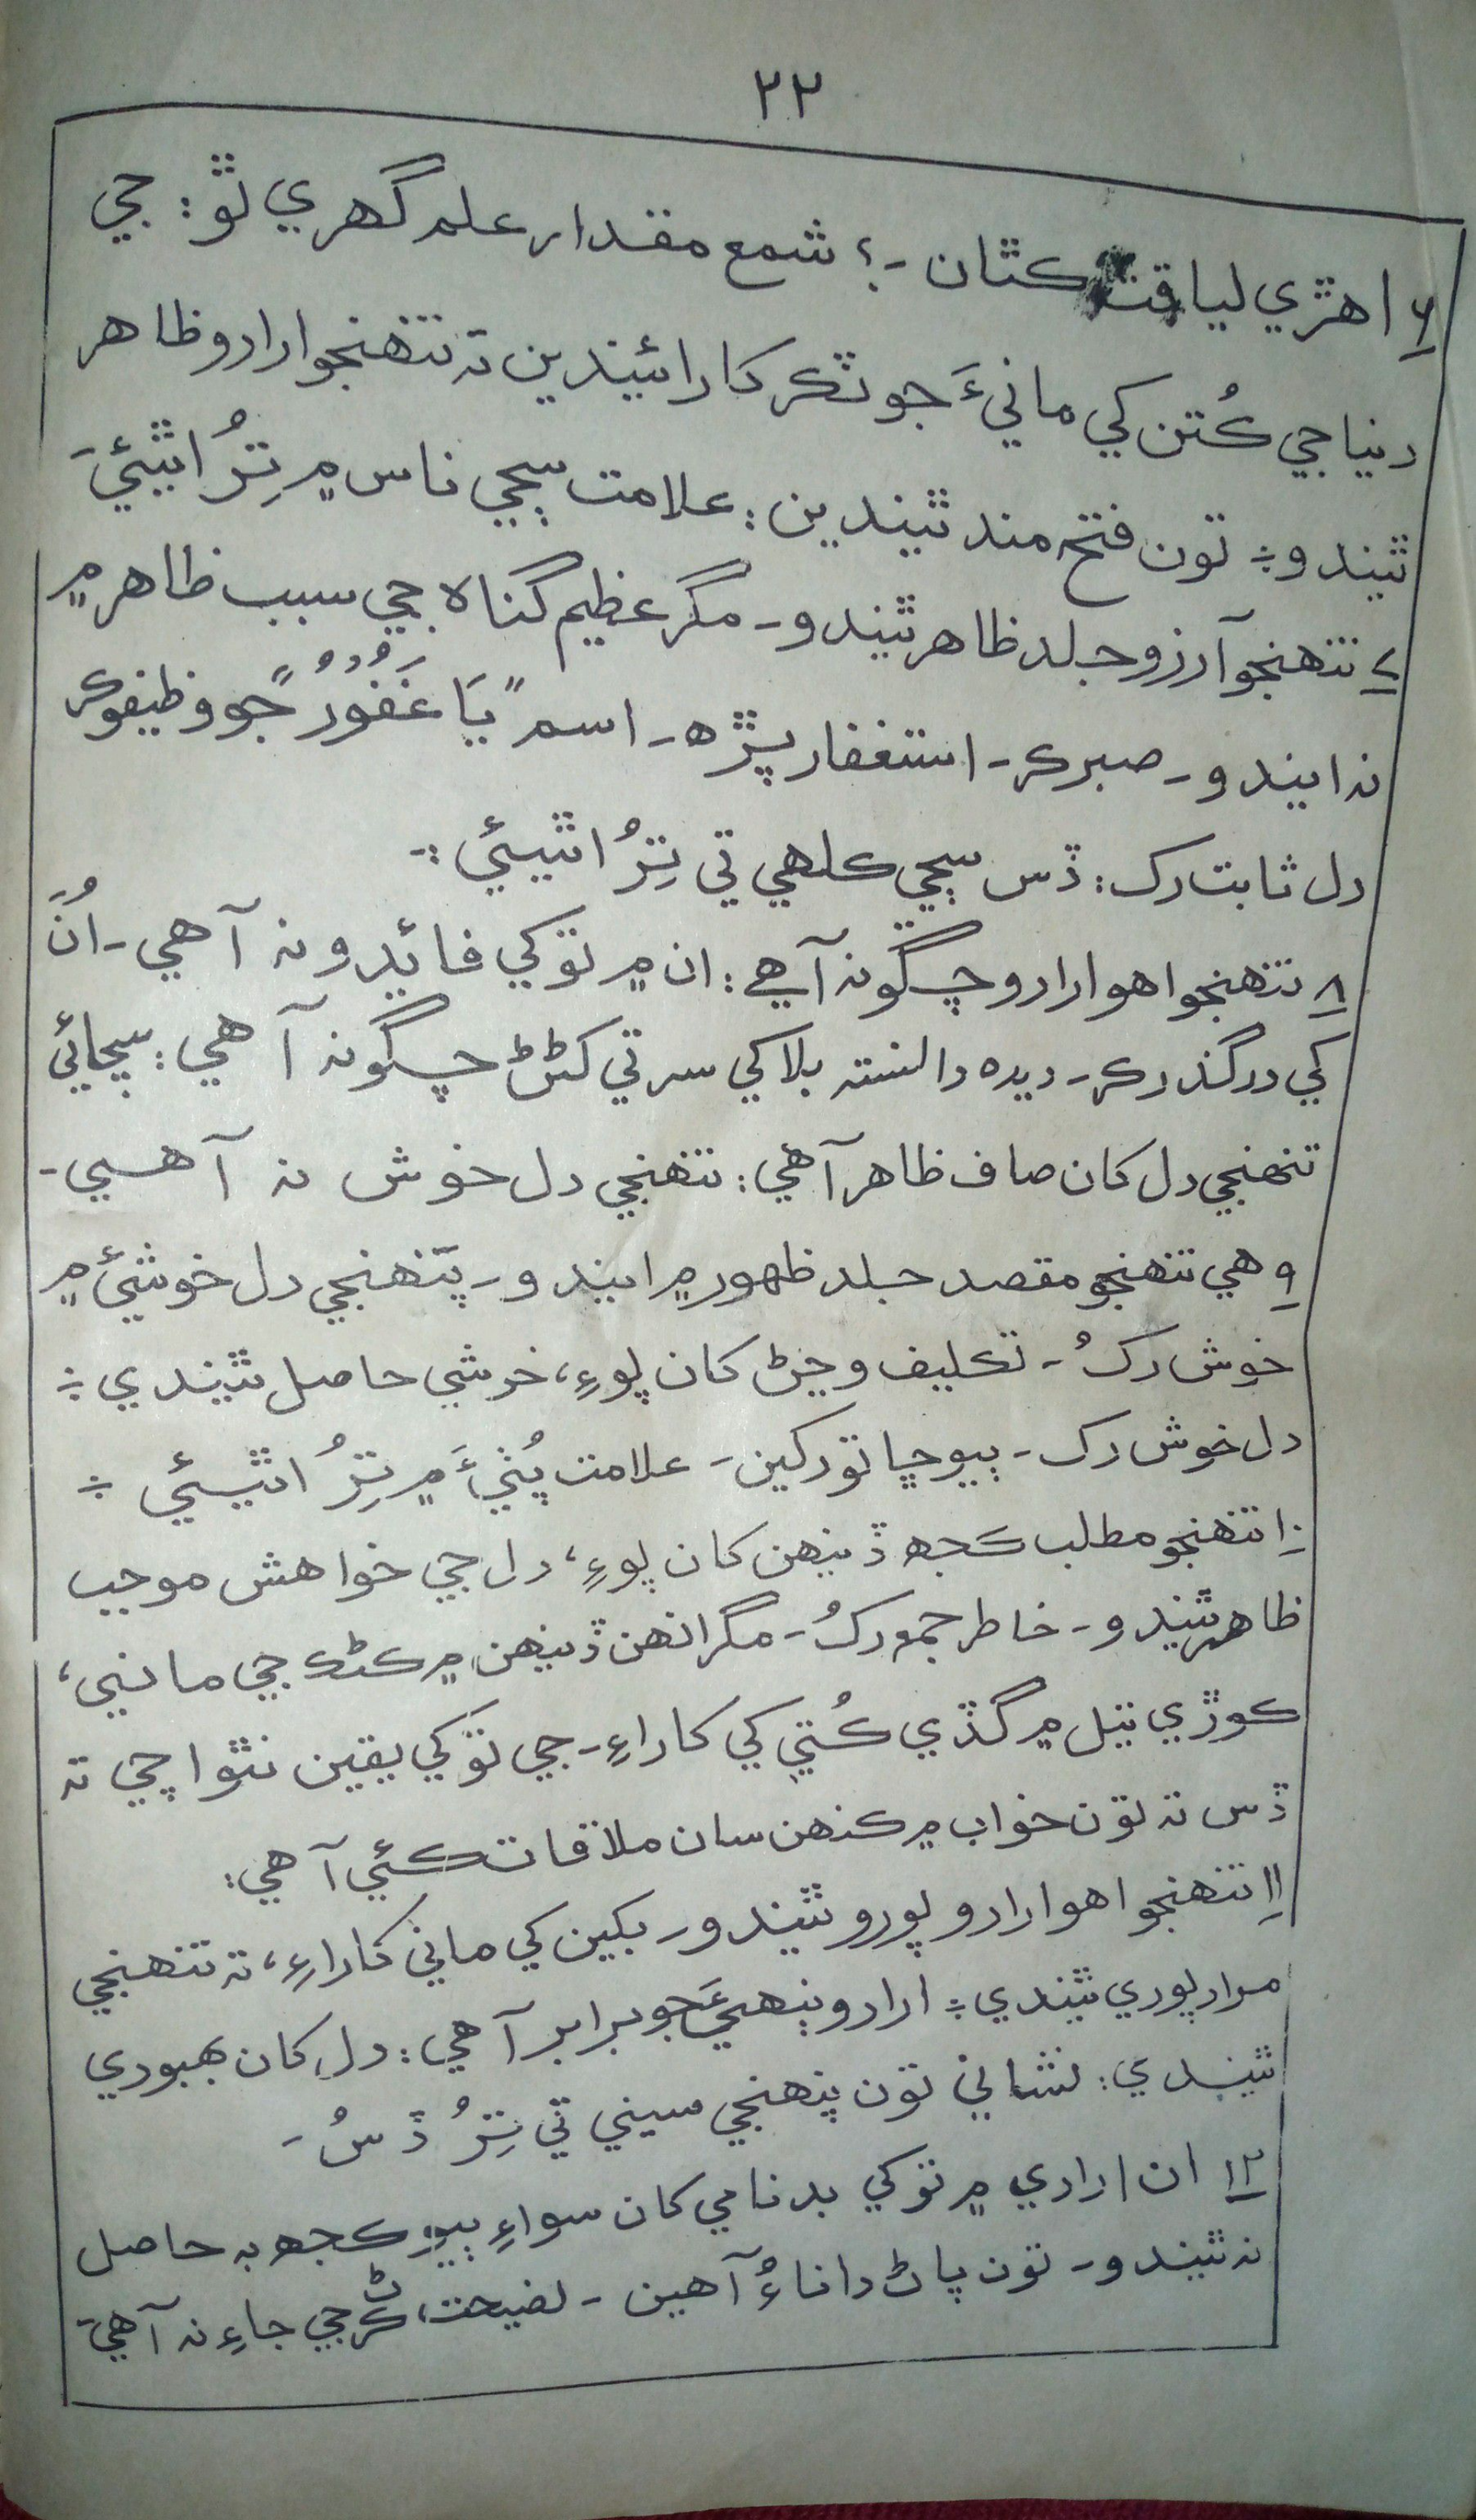 ۲۲
۶ اهڙي لياقت ڪٿان -؟ شمع مقدار علم گهري ٿو: جي
دنيا جي ڪُتن کي مانيءَ جو ٽڪر کارائيندين ته تنهنجو ارادو ظاهر
ٿيندو ÷ تون فتح مند ٿيندين: علامت سڄي ناس ۾ تِرُ اٿيئي-
۷ تنهنجو آرزو جلد ظاهر ٿيندو - مگر عظيم گناه جي سبب ظاهر ۾
نه ايندو - صبر ڪر - استغفار پڙهه - اسم "يَا غَفُوُرُ" جو وظيفو ڪر
دل ثابت رک: ڏس سڄي ڪلهي تي تِرُ اٿيئي :-
۸ تنهنجو اهو ارادو چڱو نه آهي: ان ۾ توکي فائيدو نه آهي - اُنَ
کي درگذر ڪر - ديده دانسته بلا کي سر تي کڻڻ چڱو نه آهي: سچائي
تنهنجي دل کان صاف ظاهر آهي: تنهنجي دل خوش نه آهي -
۹ هي تنهنجو مقصد جلد ظهور ۾ ايندو - پنهنجي دل خوشيءَ ۾
خوش رکُ - تڪليف وڃڻ کان پوءِ، خوشي حاصل ٿيندي ÷
دل خوش رک - ٻيو ڇا ٿو رکين - علامت پُٺيءَ ۾ تِرُ اٿيئي ÷
۱۰ تنهنجو مطلب ڪجهه ڏينهن کان پوءِ، دل جي خواهش موجب
ظاهر ٿيندو - خاطر جمع رکُ - مگر انهن ڏينهن ۾ ڪڻڪ جي ماني،
ڪوڙي تيل ۾ گڏي ڪُتي کي کاراءِ - جي توکي يقين نٿو اچي ته
ڏس ته تون خواب ۾ ڪنهن سان ملاقات ڪئي آهي:
۱۱ تنهنجو اهو ارادو پورو ٿيندو - بکين کي ماني کاراءِ، ته تنهنجي
مراد پوري ٿيندي ÷ ارادو ٻنهيءَ جو برابر آهي: دل کان بهبودي
ٿيندي: نشاني تون پنهنجي سيني تي تِرُ ڏسُ -
۱۲ ان ارادي ۾ توکي بدنامي کان سواءِ ٻيو ڪجهه به حاصل
نه ٿيندو - تون پاڻ داناءُ آهين - نصيحت ڪرڻ جي جاءِ نه آهي-